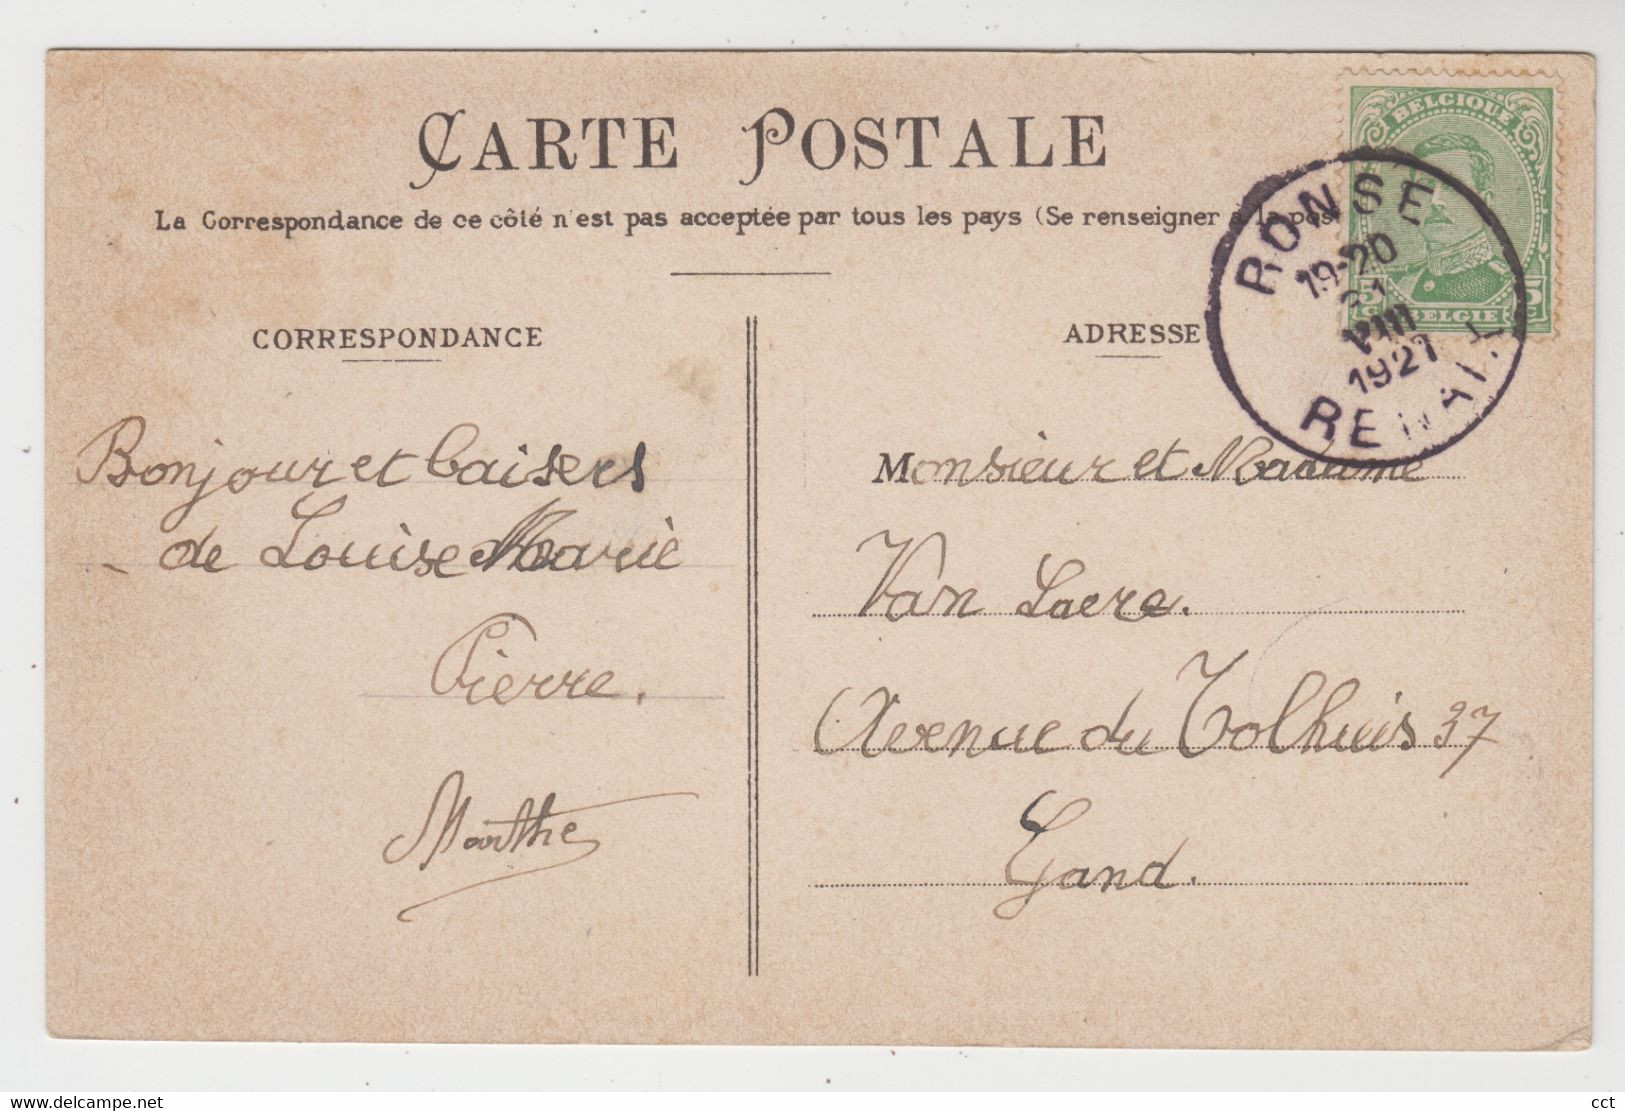 CARTE POSTALE
La Correspondance de ce côté n'est pas acceptée par tous les pays (Se renseigner à la pos
CORRESPONDANCE
ADRESSE
BELGIQUE
5 c
5 c
BELGIE
RONSE
19-20
VIII
1921
RENAIX
Bonjour et baisers
de Louise Marie
Pierre.
Marthe
Monsieur et Madame
Van Laere.
Avenue du Tolhuis 37
Gand.
delcampe.net
cct